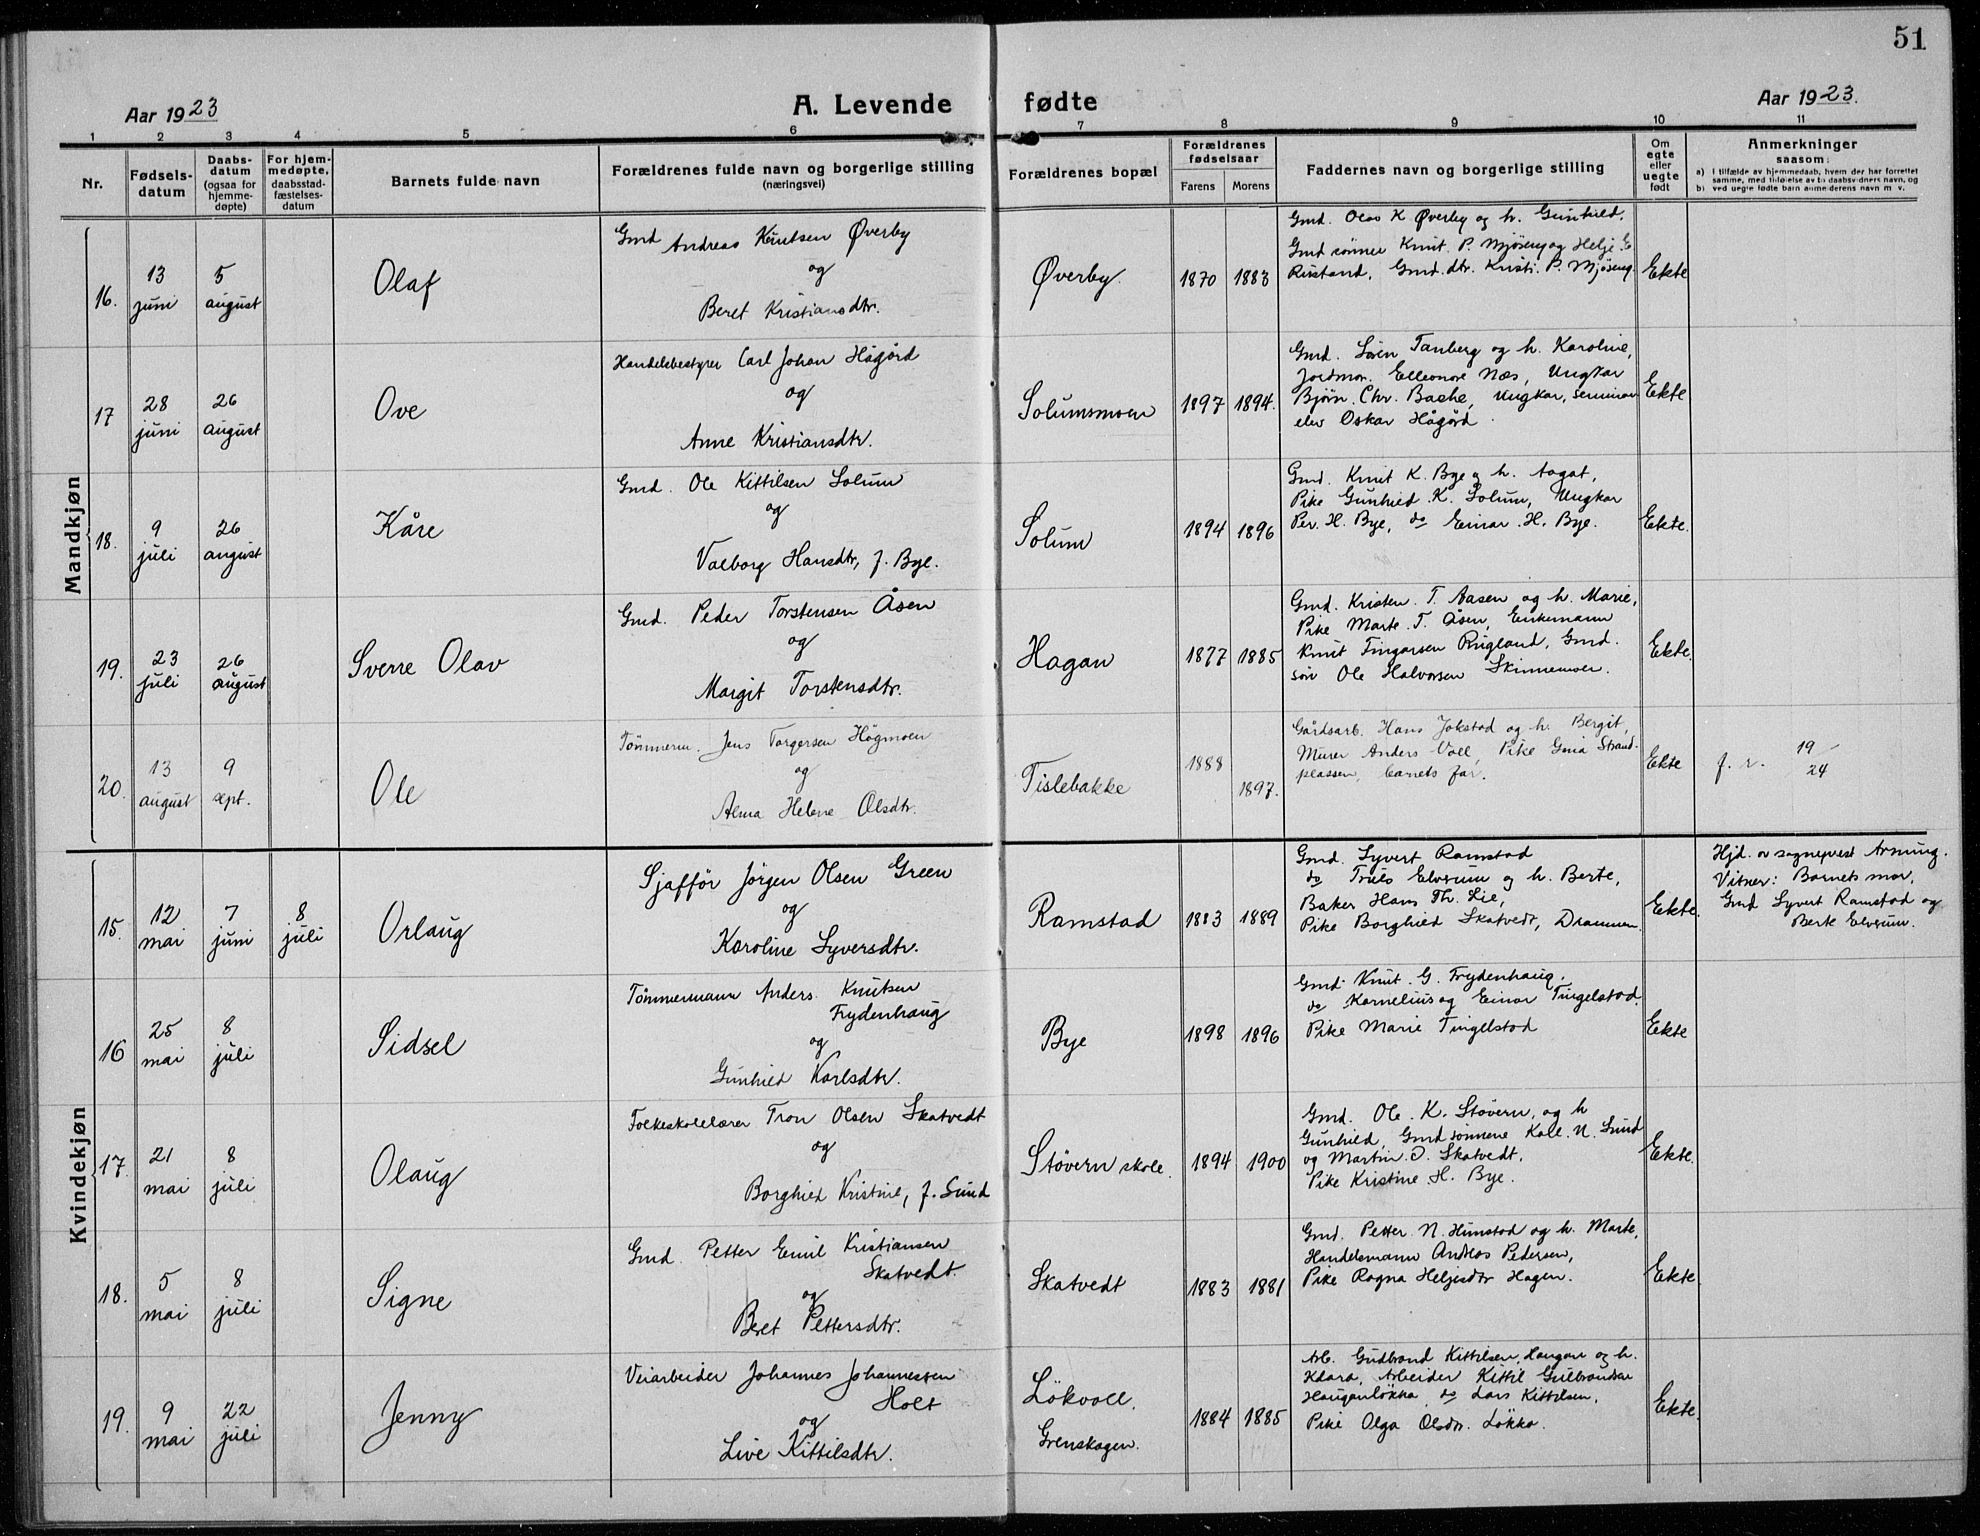 51
Aar 1923
A. Levende fødte
Aar 1923.
1 2 3 4 5 6 7 8 9 10 11
Nr.
Fødsels-
datum
Daabs-
datum
(ogsaa for
hjemme-
døpte)
For hjem-
medøpte,
daabsstad-
fæstelses-
datum
Barnets fulde navn
Forældrenes fulde navn og borgerlige stilling
(næringsvei)
Forældrenes bopæl
Forældrenes
fødselsaar
Farens Morens
Faddernes navn og borgerlige stilling
Om
egte
eller
uegte
født
Anmerkninger
saasom:
a) I tilfælde av hjemmedaab, hvem der har forrettet
samme, med tilføielse av to daabsvidners navn, og
b) ved uegte fødte barn anmelderens navn m. v.
Mandkjøn
16.
13
juni
5
august
Olaf
Gmd Andreas Knutsen Øverby
og
Beret Kristiansdtr.
Øverby
1870 1883
Gmd. Olas K Øverby og h. Gunhild,
Gmdsønner Knut P. Mjøseng og Helje E
Rustand, Gmd.dtr. Kristi P. Mjøseng.
Ekte
17
28
juni
26
august
Ove
Handelsbestyrer Carl Johan Hågård
og
Anne Kristiansdtr.
Solumsmoen
1897 1894.
Gmd. Søren Tanberg og h. Karoline,
Jordmor. Elleonore Næs, Ungkar
Bjørn. Chr. Bache, Ungkar, seminar
elev Oskar Hågård.
Ekte
18.
9
juli
26
august
Kåre
Gmd. Ole Kittilsen Solum
og
Valborg Hansdtr, f. Bye.
Solum
1894 1896
Gmd. Knut K. Bye og h. Aagot,
Pike Gunhild K. Solum, Ungkar
Per. H. Bye, do Einar. H. Bye.
Ekte.
19.
23
juli
26
august
Sverre Olav
Gmd. Peder Torstensen Åsen
og
Margit Torstensdtr.
Hagan
1877 1885
Gmd. Kristen. T. Aasen og h. Marie,
Pike Marte. T. Åsen, Enkemann
Knut Fingarsen Rugland, Gmd.
søn Ole Halvorsen Skinnemoen.
Ekte.
20.
13
august
9
sept.
Ole
Tömmerm. Jens Torgersen Högmoen
og
Alma Helene Olsdtr.
Tislebakke
1888 1897.
Gårdsarb. Hans Jokstad og h. Bergit,
Murer Anders Voll, Pike Gina Strand-
plassen, barnets far.
Ekte
f. r. 19/24
Kvindekjøn
15.
12
mai
7
juni
8
juli
Orlaug
Sjafför Jørgen Olsen Green
og
Karoline Syversdtr.
Ramstad
1883 1889
Gmd. Syvert Ramstad
do Truls Elverum og h. Berte,
Baker Hans Th. Lie,
Pike Borghild Skatvedt, Drammen.
Ekte.
Hjd. av sogneprest Arnung.
Vitner: Barnets mor,
Gmd Syvert Ramstad og
Berte Elverum.
16
25
mai
8
juli
Sidsel
Tömmermann Anders Knutsen
Frydenhaug
og
Gunhild Karlsdtr.
Bye
1898 1896
Gmd Knut. G. Frydenhaug,
do Kornelius og Einar Tingelstad.
Pike Marie Tingelstad
Ekte
17.
21
mai
8
juli
Olaug
Folkeskolelærer Tron Olsen Skatvedt
og
Borghild Kristine, f. Sund
Støvern skole
1894 1900
Gmd. Ole. K. Støvern, og h
Gunhild, Gmdsønnene Kall. N. Sund
og Martin O. Skatvedt,
Pike Kristine H. Bye.
Ekte.
18.
5
mai
8
juli
Signe
Gmd. Petter Emil Kristiansen
Skatvedt.
og
Beret Pettersdtr.
Skatvedt
1883 1881
Gmd. Petter N. Hunstad og h. Marte,
Handelsmann Andreas Pedersen,
Pike Ragna Heljesdtr Hagen.
Ekte
19.
9
mai
22
juli
Jenny
Veiarbeider Johannes Johannessen
Holt
og
Live Kittilsdtr.
Løkvoll.
Grenskogen.
1884 1885
Arb. Gudbrand Kittilsen, Haugan og h.
Klara, Arbeider Kittil Gulbrandsen
Hauganløkka, do Lars Kittilsen,
Pike Olga Olsdtr. Løkka.
Ekte.